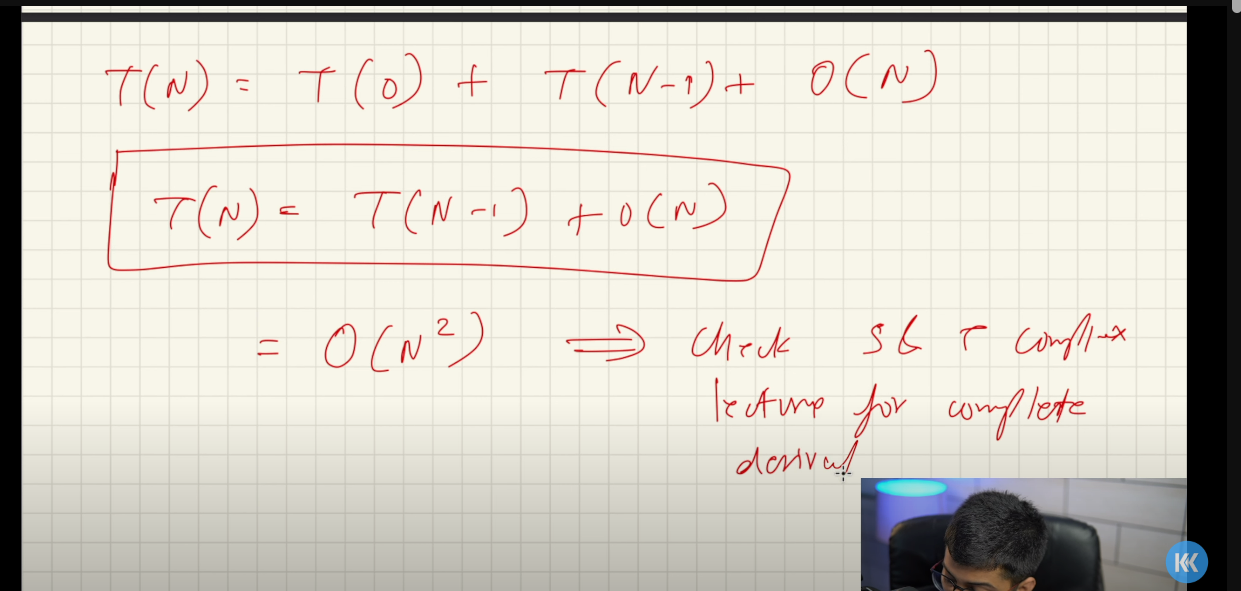 T(N) = T(0) + T(N-1) + O(N)
T(N) = T(N-1) + O(N)
= O(N²) ⟹ Check S & T complex
lecture for complete
derivat
K